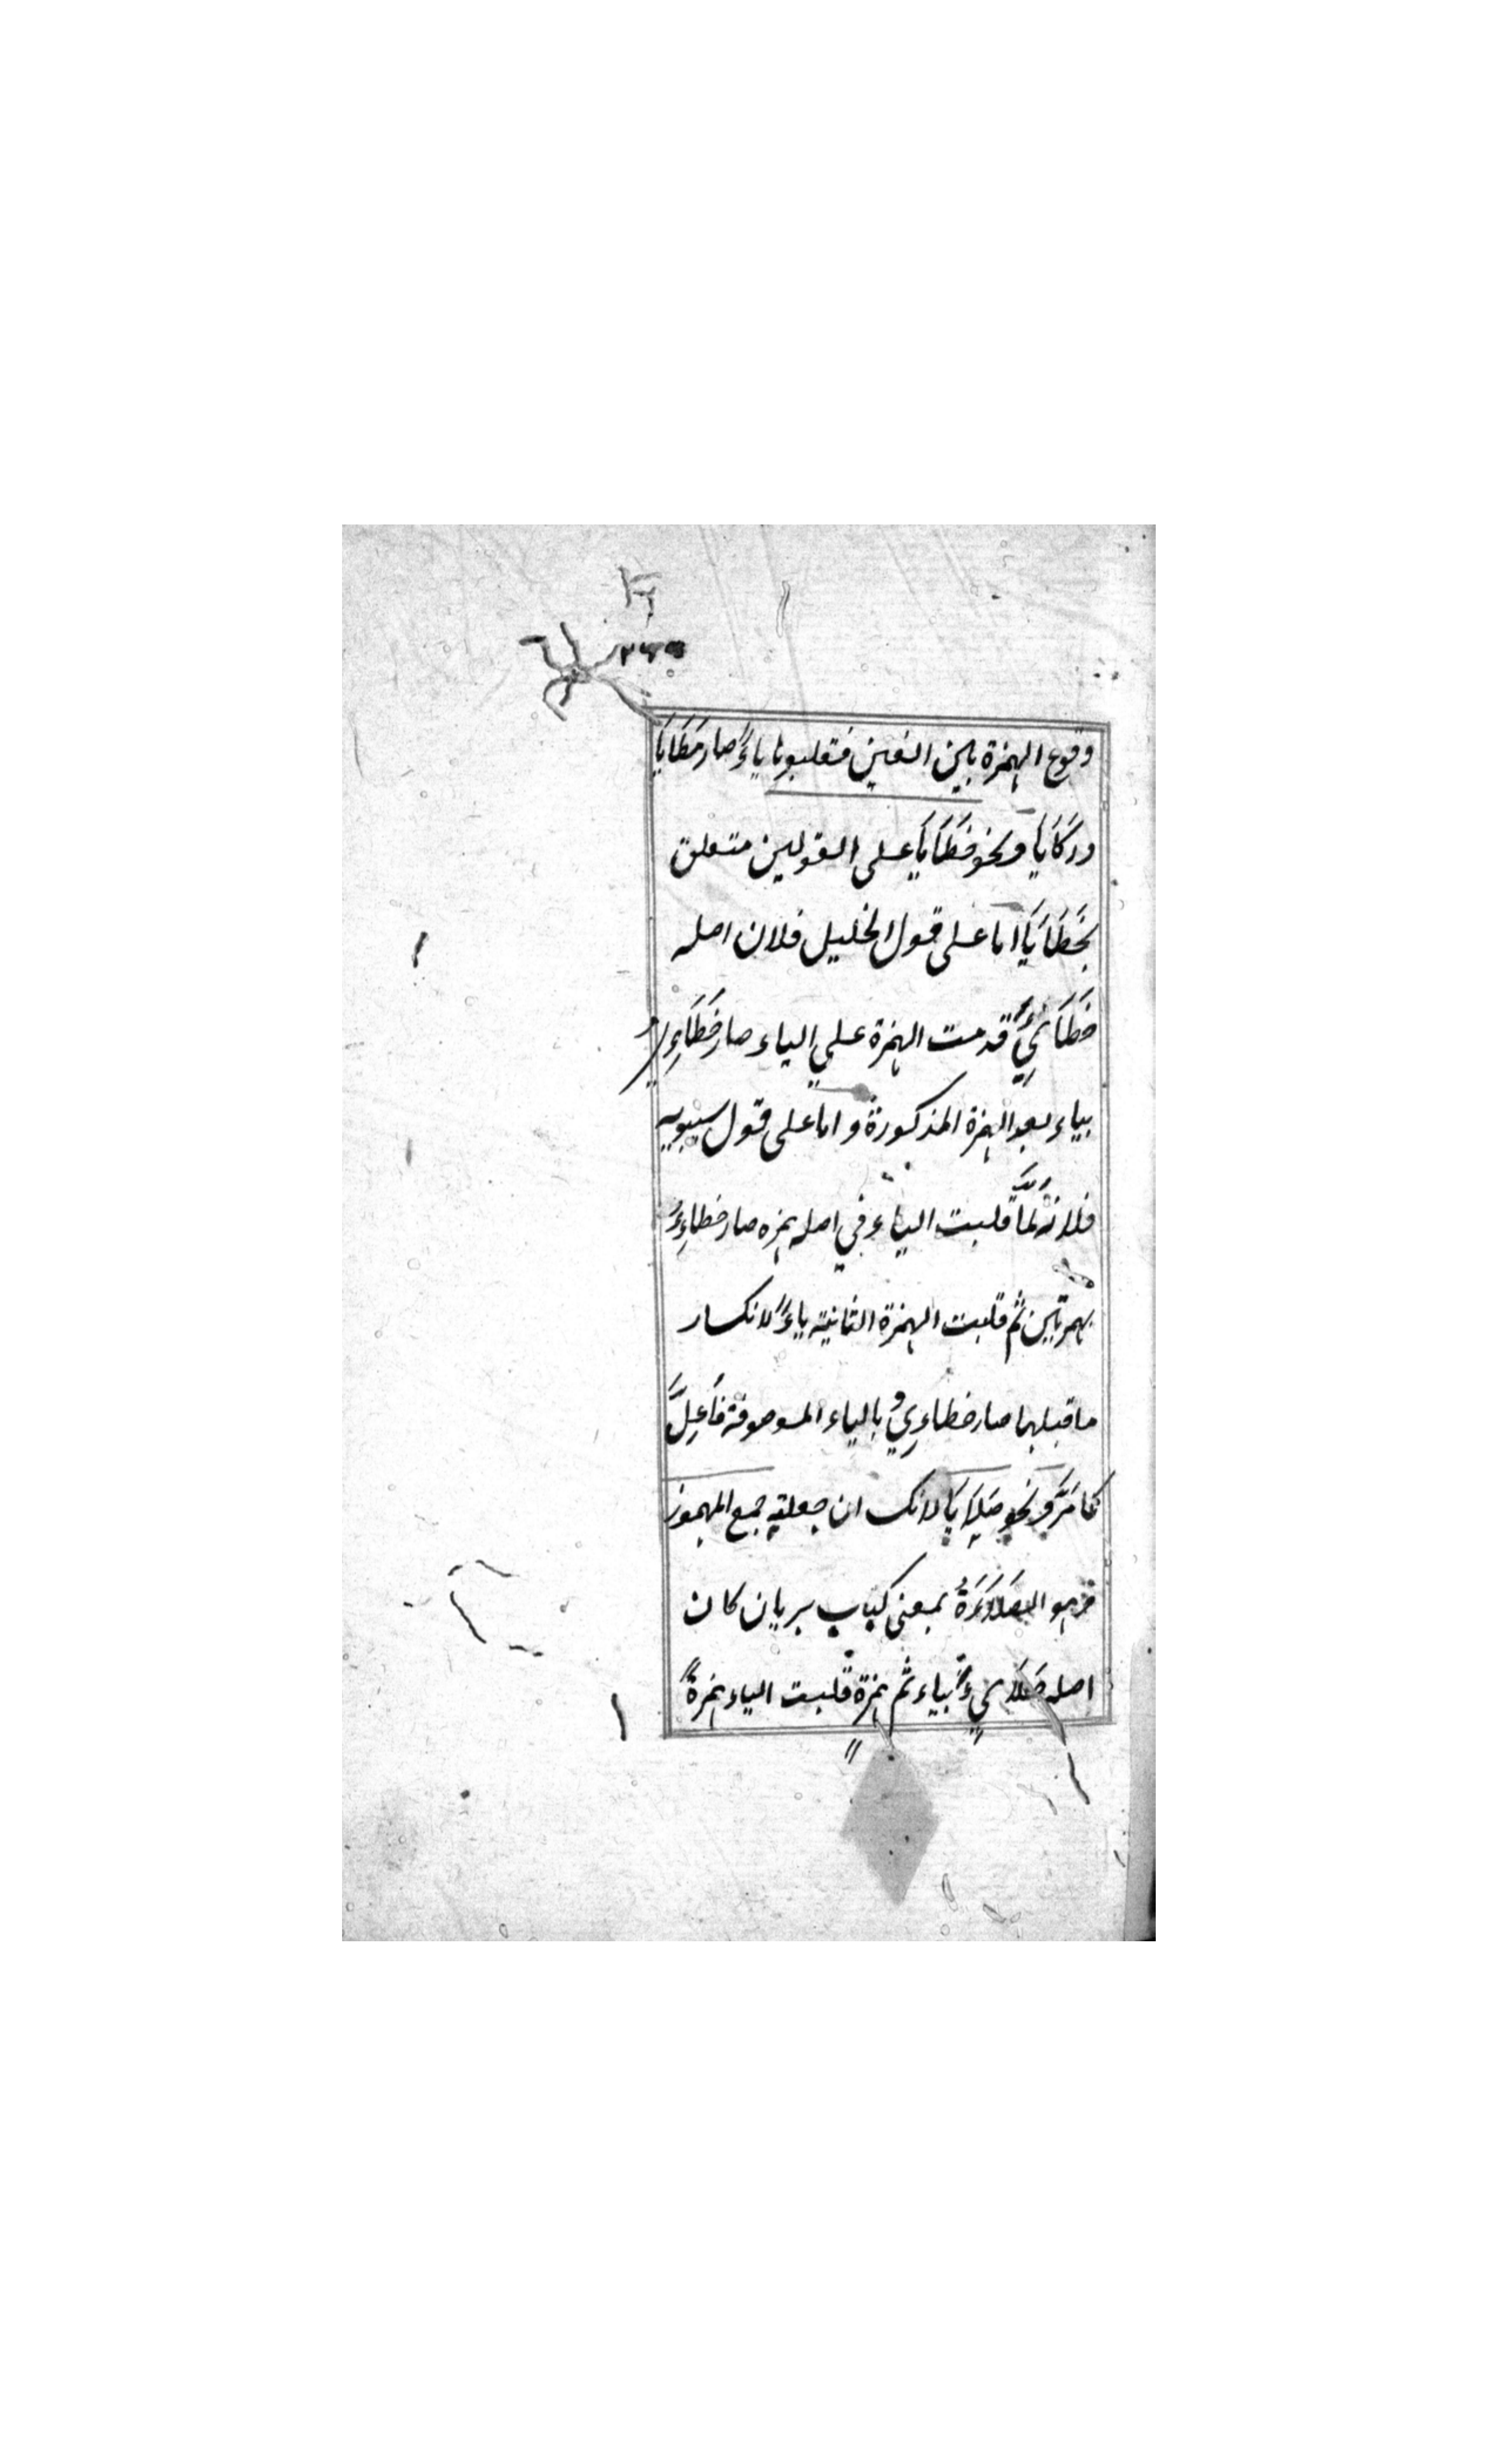 وقوع الهمزة بين الفين فتقلبونها ياءً صار مَطَايَا
وركَايَا ونحو خَطَايَا على القولين متعلق
بخَطَايَا اما على قول الخليل فلان اصله
خَطَايِئُ قدمت الهمزة على الياء صار خَطَاءِيُ
بياء بعد الهمزة المذكورة واما على قول سيبويه
فلانه لمَّا قلبت الياء في اصله همزه صار خطاءِءُ
بهمزتين ثم قلبت الهمزة الثانية ياءً لانكسار
ما قبلها صار خطاءِيُ بالياء الموصوفة فاُعِلَّ
كما مَرَّ ونحو صَلَايَا لانك ان جعلته جمع المهموز
نحو الصَلَاءَةُ بمعنى كباب بريان كان
اصله صَلَايِءُ بياء ثم همزة قلبت الياء همزةً